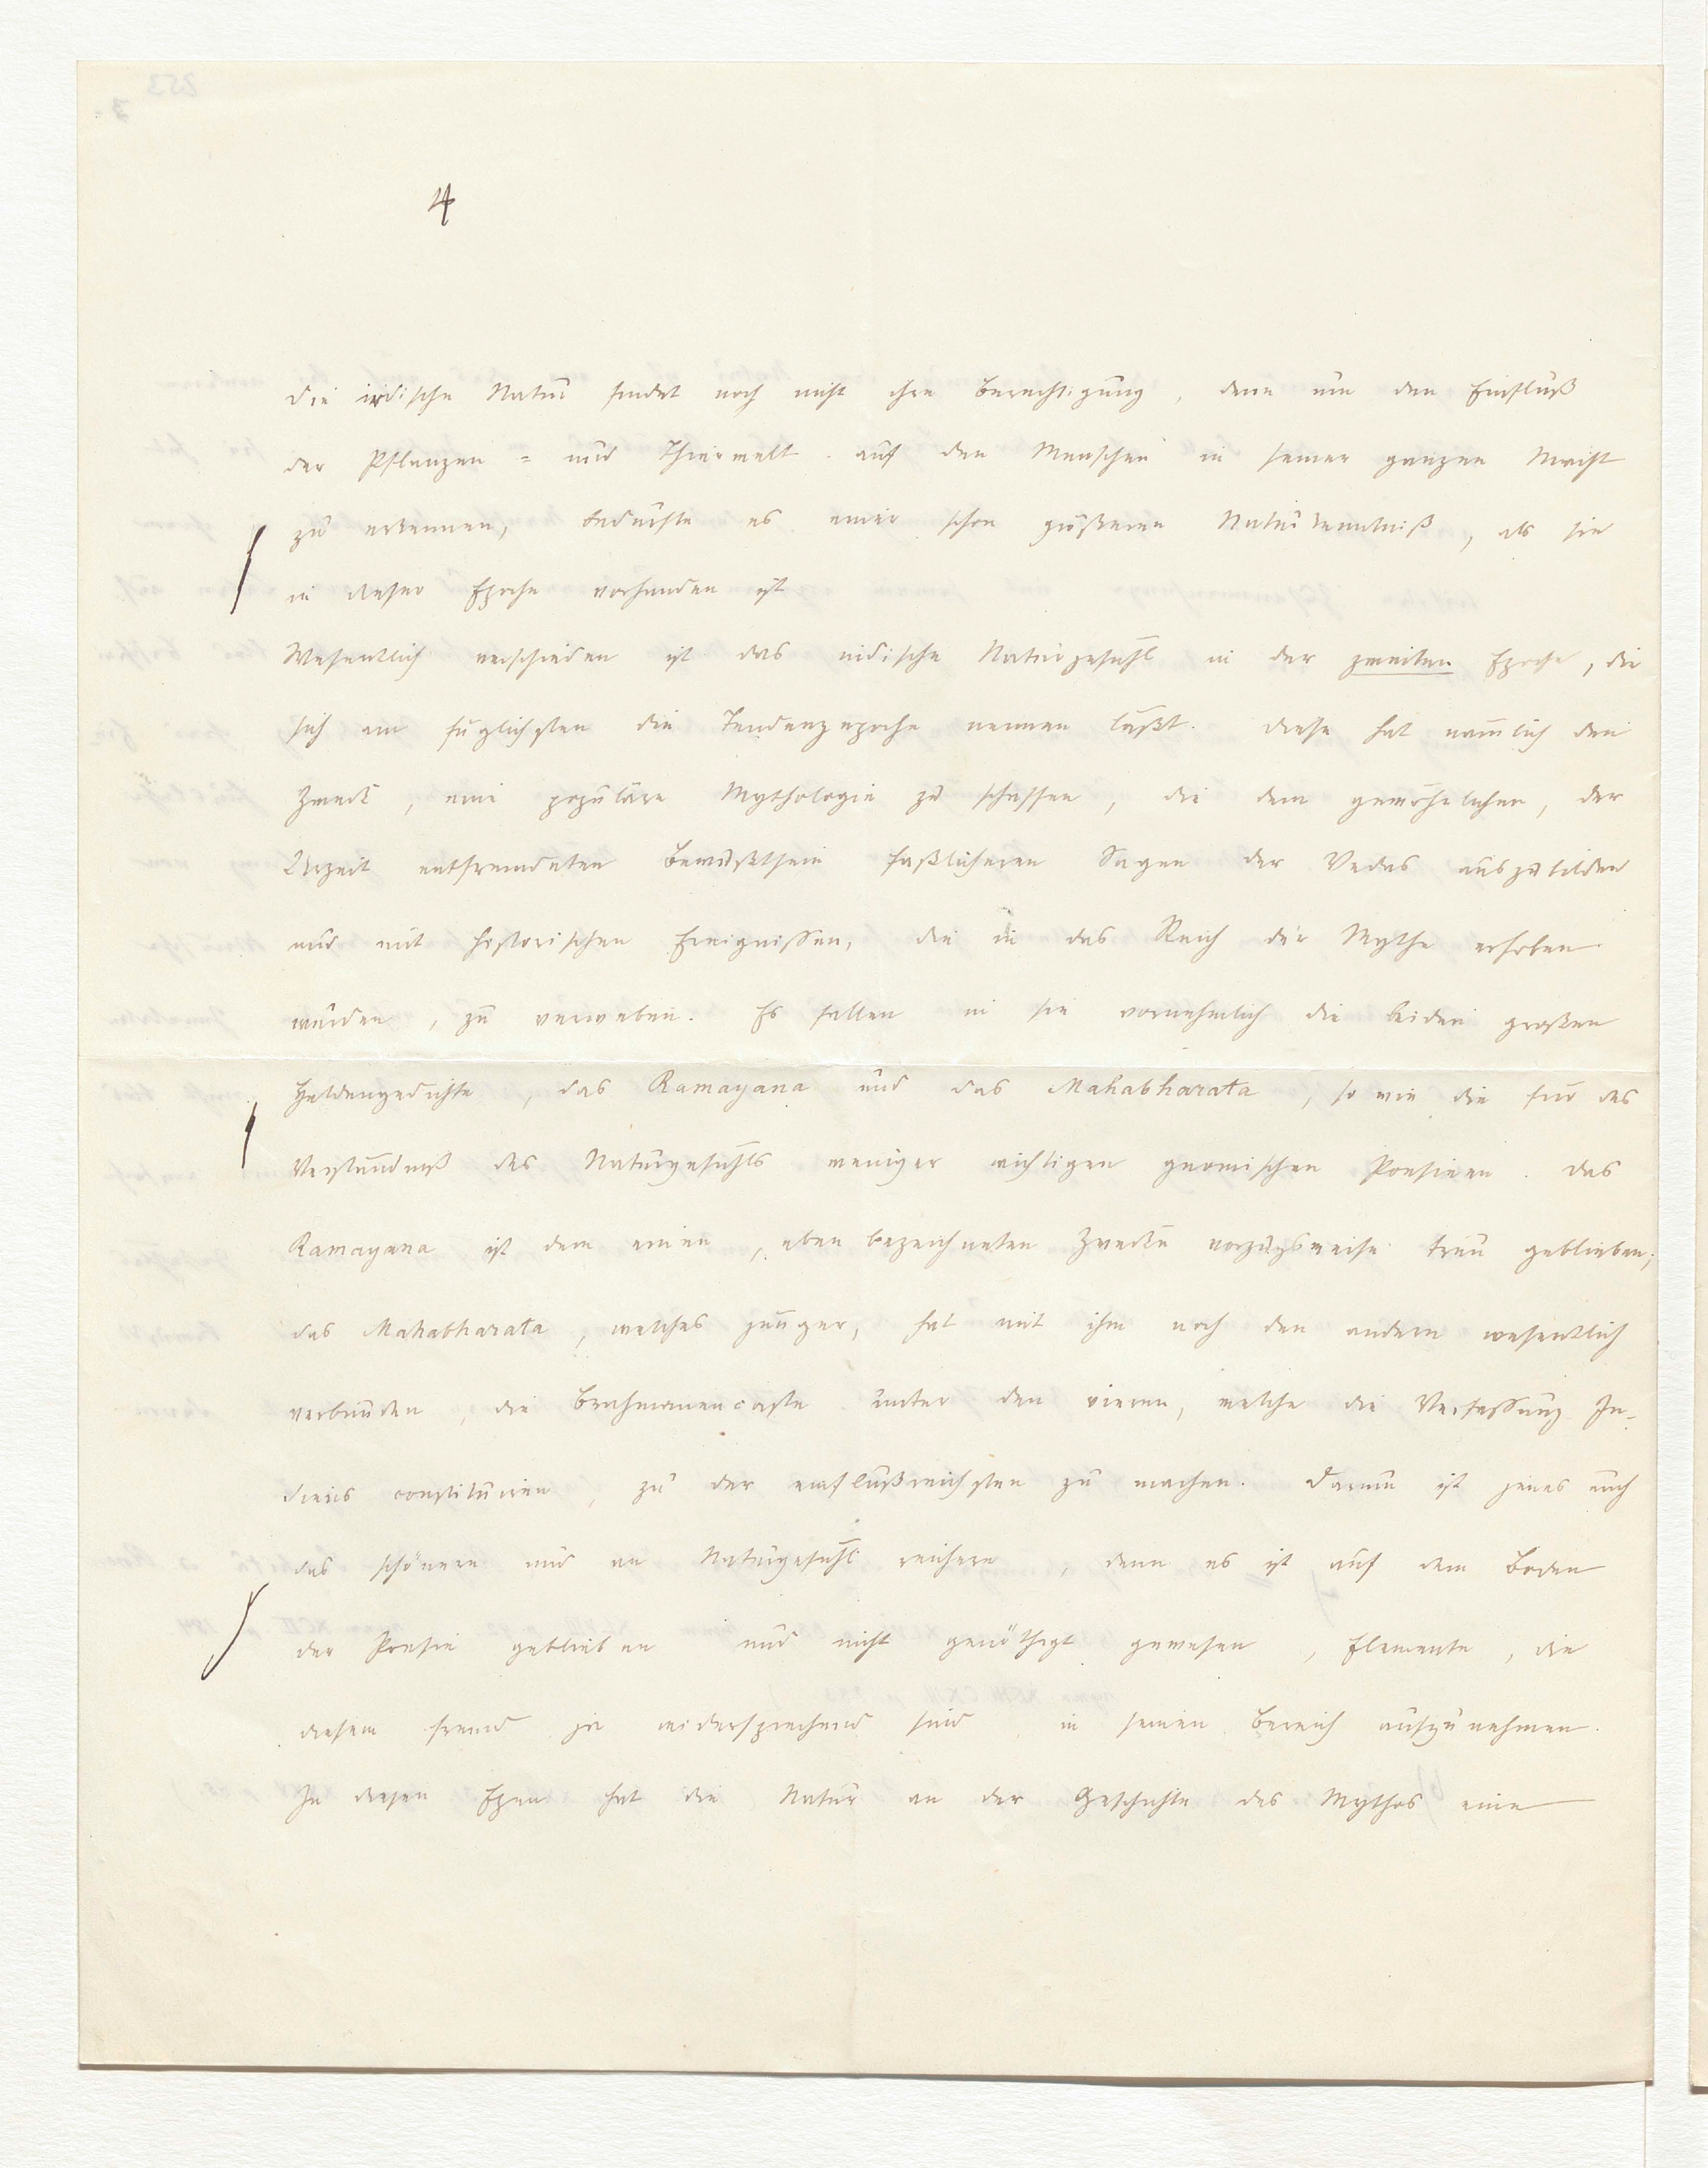 4
die irdische Natur findet noch nicht ihre Berechtigung, denn um den Einfluß
der Pflanzen = und Thierwelt auf den Menschen in seiner ganzen Macht
zu erkennen, bedurfte es einer schon größeren Naturkenntniß, als sie
in dieser Epoche vorhanden ist
Wesentlich verschieden ist das indische Naturgefühl in der zweiten Epoche, die
sich am füglichsten die Tendenzepoche nennen läßt. Diese hat nämlich den
Zweck, eine populäre Mythologie zu schaffen, die dem gewöhnlichen, der
Urzeit entfremdeten Bewußtsein faßlicheren Sagen der Vedas auszubilden
und mit historischen Ereignissen, die in das Reich der Mythe erhoben
wurden, zu verweben. Es fallen in sie vornehmlich die beiden großen
Heldengedichte, das Ramayana und das Mahabharata, so wie die für das
Verständniß des Naturgefühls weniger wichtigen gnomischen Poesieen. Das
Ramayana ist dem einen, eben bezeichneten Zwecke vorzugsweise treu geblieben;
das Mahabharata, welches jünger, hat mit ihm noch den andern wesentlich
verbunden, die Brahmanencaste unter den vieren, welche die Verfassung In-
diens constituiren, zu der einflußreichsten zu machen. Darum ist jenes auch
das schönere und an Naturgefühl reichere, denn es ist auf dem Boden
der Poesie geblieben und nicht genöthigt gewesen, Elemente, die
diesem fremd ja widersprechend sind in seinen Bereich aufzunehmen.
In diesen Epen hat die Natur an der Geschichte des Mythos eine